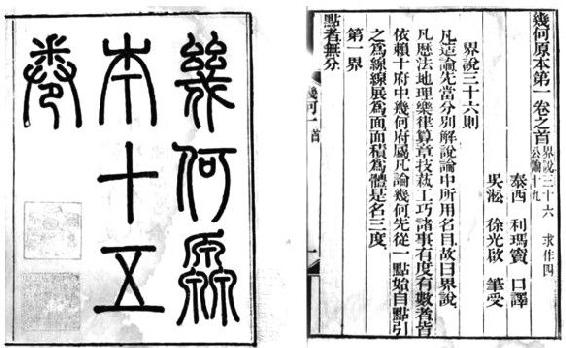 幾何原本第一卷之首 界說三十六 求作四
公論十九
泰西 利瑪竇 口譯
吳淞 徐光啟 筆受
界說三十六則
凡造論先當分別解說論中所用名目故曰界說
凡歷法地理樂律算章技藝工巧諸事有度有數者皆
依賴十府中幾何府屬凡論幾何先從一點始自點引
之爲線線展爲面面積爲體是名三度
第一界
點者無分
幾何一首
幾何原
本十五
卷